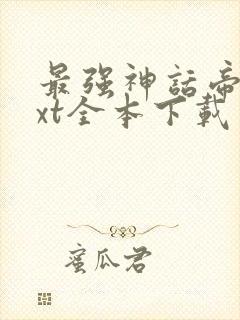 最强神話帝
xt全本下載
蜜瓜君